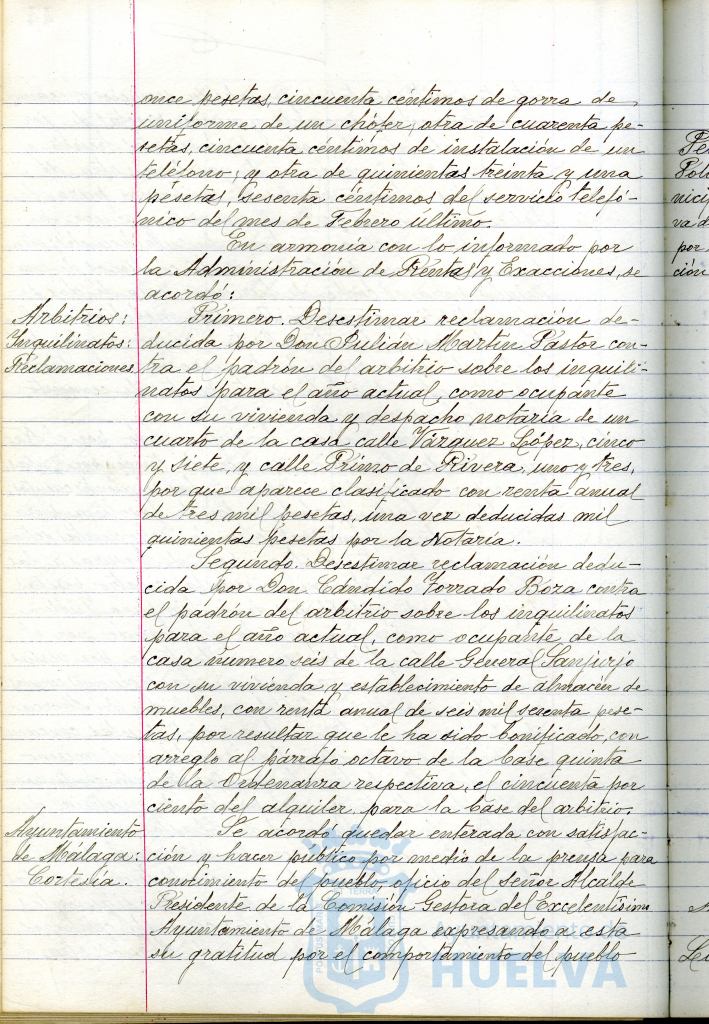 once pesetas, cincuenta céntimos de gorra de
uniforme de un chófer; otra de cuarenta pe-
setas, cincuenta céntimos de instalación de un
teléfono; y otra de quinientas treinta y una
pesetas, sesenta céntimos del servicio telefó-
nico del mes de Febrero último.
En armonía con lo informado por
la Administración de Rentas y Exacciones, se
acordó:
Arbitrios:
Inquilinatos:
Reclamaciones
Primero. Desestimar reclamación de-
ducida por Don Julián Martín Pastor con-
tra el padrón del arbitrio sobre los inquili-
natos para el año actual, como ocupante
con su vivienda y despacho notaría de un
cuarto de la casa calle Vázquez López, cinco
y siete, y calle Primo de Rivera, uno y tres,
por que aparece clasificado con renta anual
de tres mil pesetas, una vez deducidas mil
quinientas pesetas por la Notaría.
Segundo. Desestimar reclamación dedu-
cida por Don Cándido Torrado Boza contra
el padrón del arbitrio sobre los inquilinatos
para el año actual, como ocupante de la
casa número seis de la calle General Sanjurjo
con su vivienda y establecimiento de almacén de
muebles, con renta anual de seis mil sesenta pese-
tas, por resultar que le ha sido bonificado, con
arreglo al párrafo octavo de la base quinta
de la Ordenanza respectiva, el cincuenta por
ciento del alquiler para la base del arbitrio.
Ayuntamiento
de Málaga:
Cortesía.
Se acordó quedar enterada con satisfac-
ción y hacer público por medio de la prensa para
conocimiento del pueblo, oficio del señor Alcalde
Presidente de la Comisión Gestora del Excelentísimo
Ayuntamiento de Málaga expresando a esta
su gratitud por el comportamiento del pueblo
HUELVA
va d
por
ción